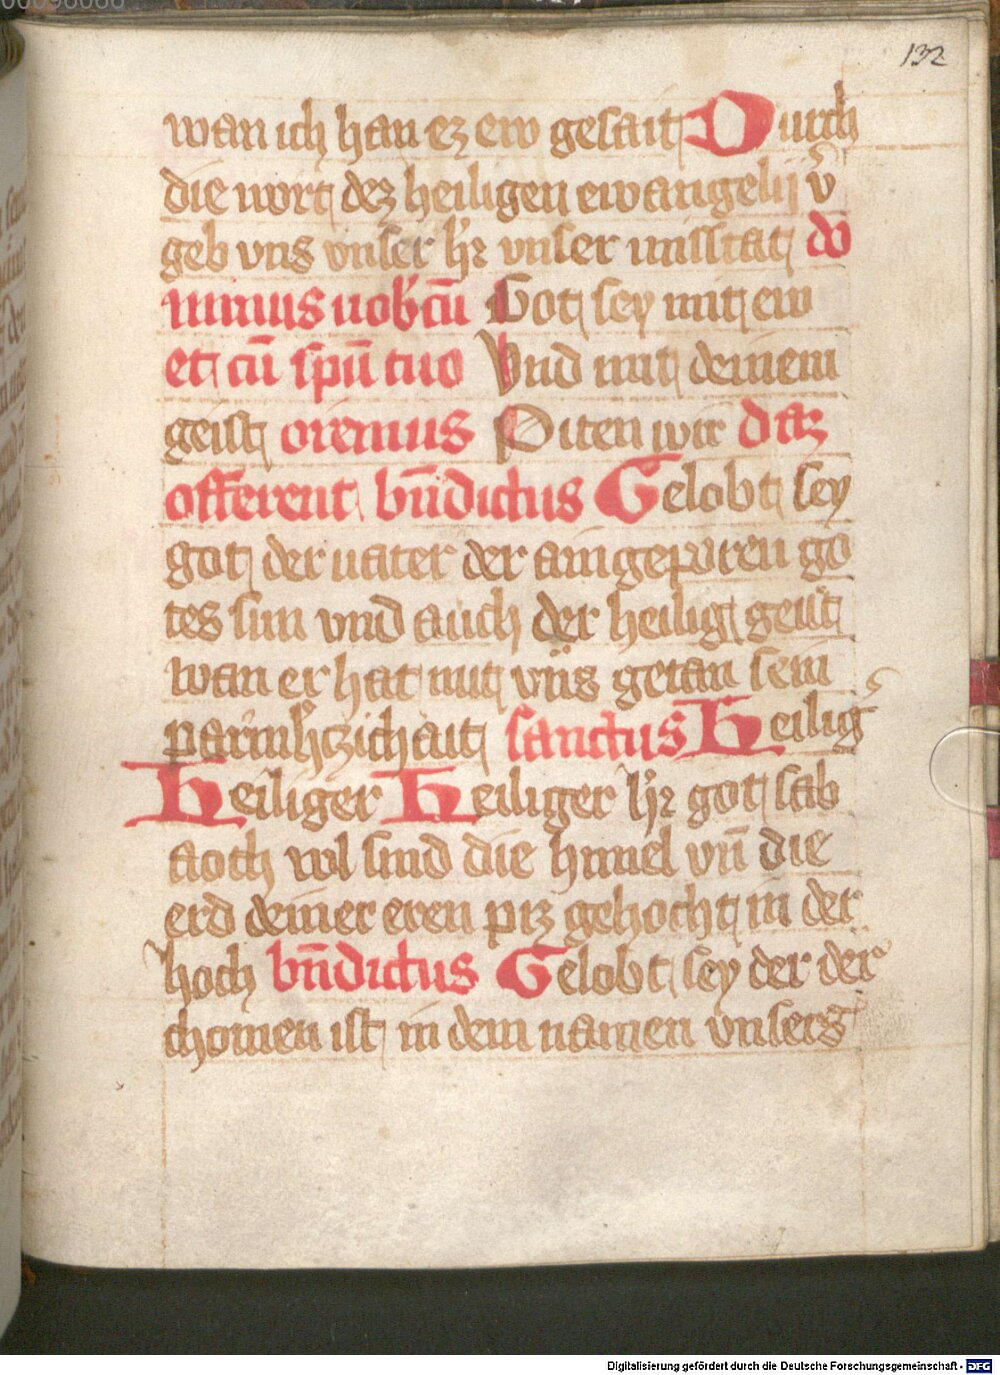 132
wan ich han ez ew gesait Durch
die wort dez heiligen ewangelij v̾
geb vns vnser h̾r vnser missetat do
minus uob̾cū Got sey mit ew
et cū spū tuo Vnd mit deinem
geist oremus Piten wir daz
offerent bn̄dictus Gelobt sey
got der uater der aingeporen go
tes sun vnd auch der heilig geist
wan er hat mit vns getan sein
parmh̾czichait sanctus Heilig̾
Heiliger Heiliger h̾r got sab
aoth vol sind die himel vn̄ die
erd deiner eren piz gehocht in der
hoch bn̄dictus Gelobt sey der der
chomen ist in dem namen vnsers
Digitalisierung gefördert durch die Deutsche Forschungsgemeinschaft - DFG